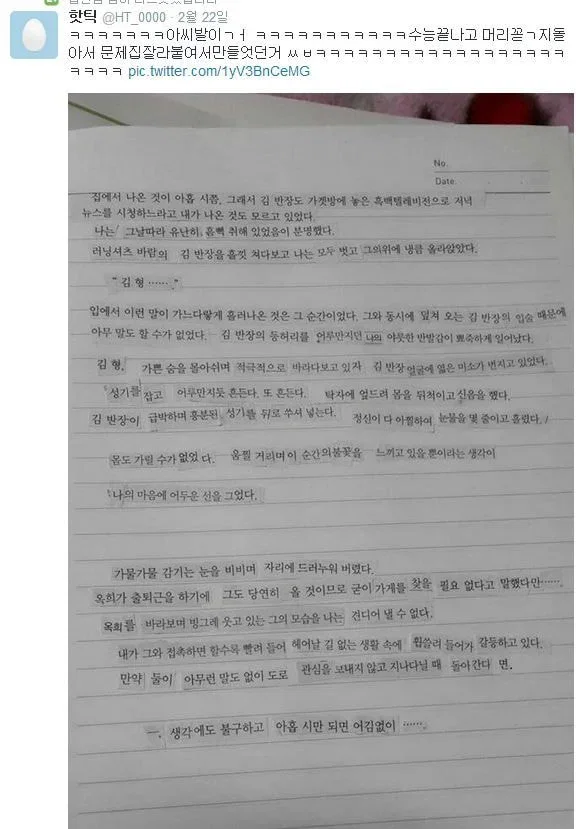 핫틱 @HT_0000 · 2월 22일
ㅋㅋㅋㅋㅋㅋㅋㅋ아씨발이ㄱㅓ ㅋㅋㅋㅋㅋㅋㅋㅋㅋㅋㅋ수능끝나고 머리꼳ㄱ지돌
아서 문제집잘라붙여서만들엇던거 ㅆㅂㅋㅋㅋㅋㅋㅋㅋㅋㅋㅋㅋㅋㅋㅋㅋㅋㅋㅋ
ㅋㅋㅋㅋ pic.twitter.com/1yV3BnCeMG
No.
Date.
집에서 나온 것이 아홉 시쯤, 그래서 김 반장도 가겟방에 놓은 흑백텔레비전으로 저녁
뉴스를 시청하느라고 내가 나온 것도 모르고 있었다.
나는 그날따라 유난히, 흠뻑 취해 있었음이 분명했다.
러닝셔츠 바람의 김 반장을 흘낏 쳐다보고 나는 모두 벗고 그의위에 냉큼 올라앉았다.
“ 김 형 ……. ”
입에서 이런 말이 가느다랗게 흘러나온 것은 그 순간이었다. 그와 동시에 덮쳐 오는 김 반장의 입술 때문에
아무 말도 할 수가 없었다. 김 반장의 등허리를 어루만지던 나의 야릇한 반발감이 뾰죽하게 일어났다.
김 형, 가쁜 숨을 몰아쉬며 적극적으로 바라다보고 있자 김 반장 얼굴에 엷은 미소가 번지고 있었다.
성기를 잡고 어루만지듯 흔든다. 또 흔든다. 탁자에 엎드려 몸을 뒤척이고 신음을 했다.
김 반장이 급박하며 흥분된 성기를 뒤로 쑤셔 넣는다. 정신이 다 아찔하여, 눈물을 몇 줄이고 흘렸다. /
몸도 가릴 수가 없었 다. 움찔 거리며 이 순간의불꽃을 느끼고 있을 뿐이라는 생각이
나의 마음에 어두운 선을 그었다.
가물가물 감기는 눈을 비비며 자리에 드러누워 버렸다.
옥희가 출퇴근을 하기에 그도 당연히 올 것이므로 굳이 가게를 찾을 필요 없다고 말했다만…….
옥희를 바라보며 빙그레 웃고 있는 그의 모습을 나는 견디어 낼 수 없다.
내가 그와 접촉하면 할수록 빨려 들어 헤어날 길 없는 생활 속에 휩쓸려 들어가 갈등하고 있다.
만약 둘이 아무런 말도 없이 도로 관심을 보내지 않고 지나다닐 때 돌아간다 면,
ㅡ. 생각에도 불구하고 아홉 시만 되면 어김없이 …….